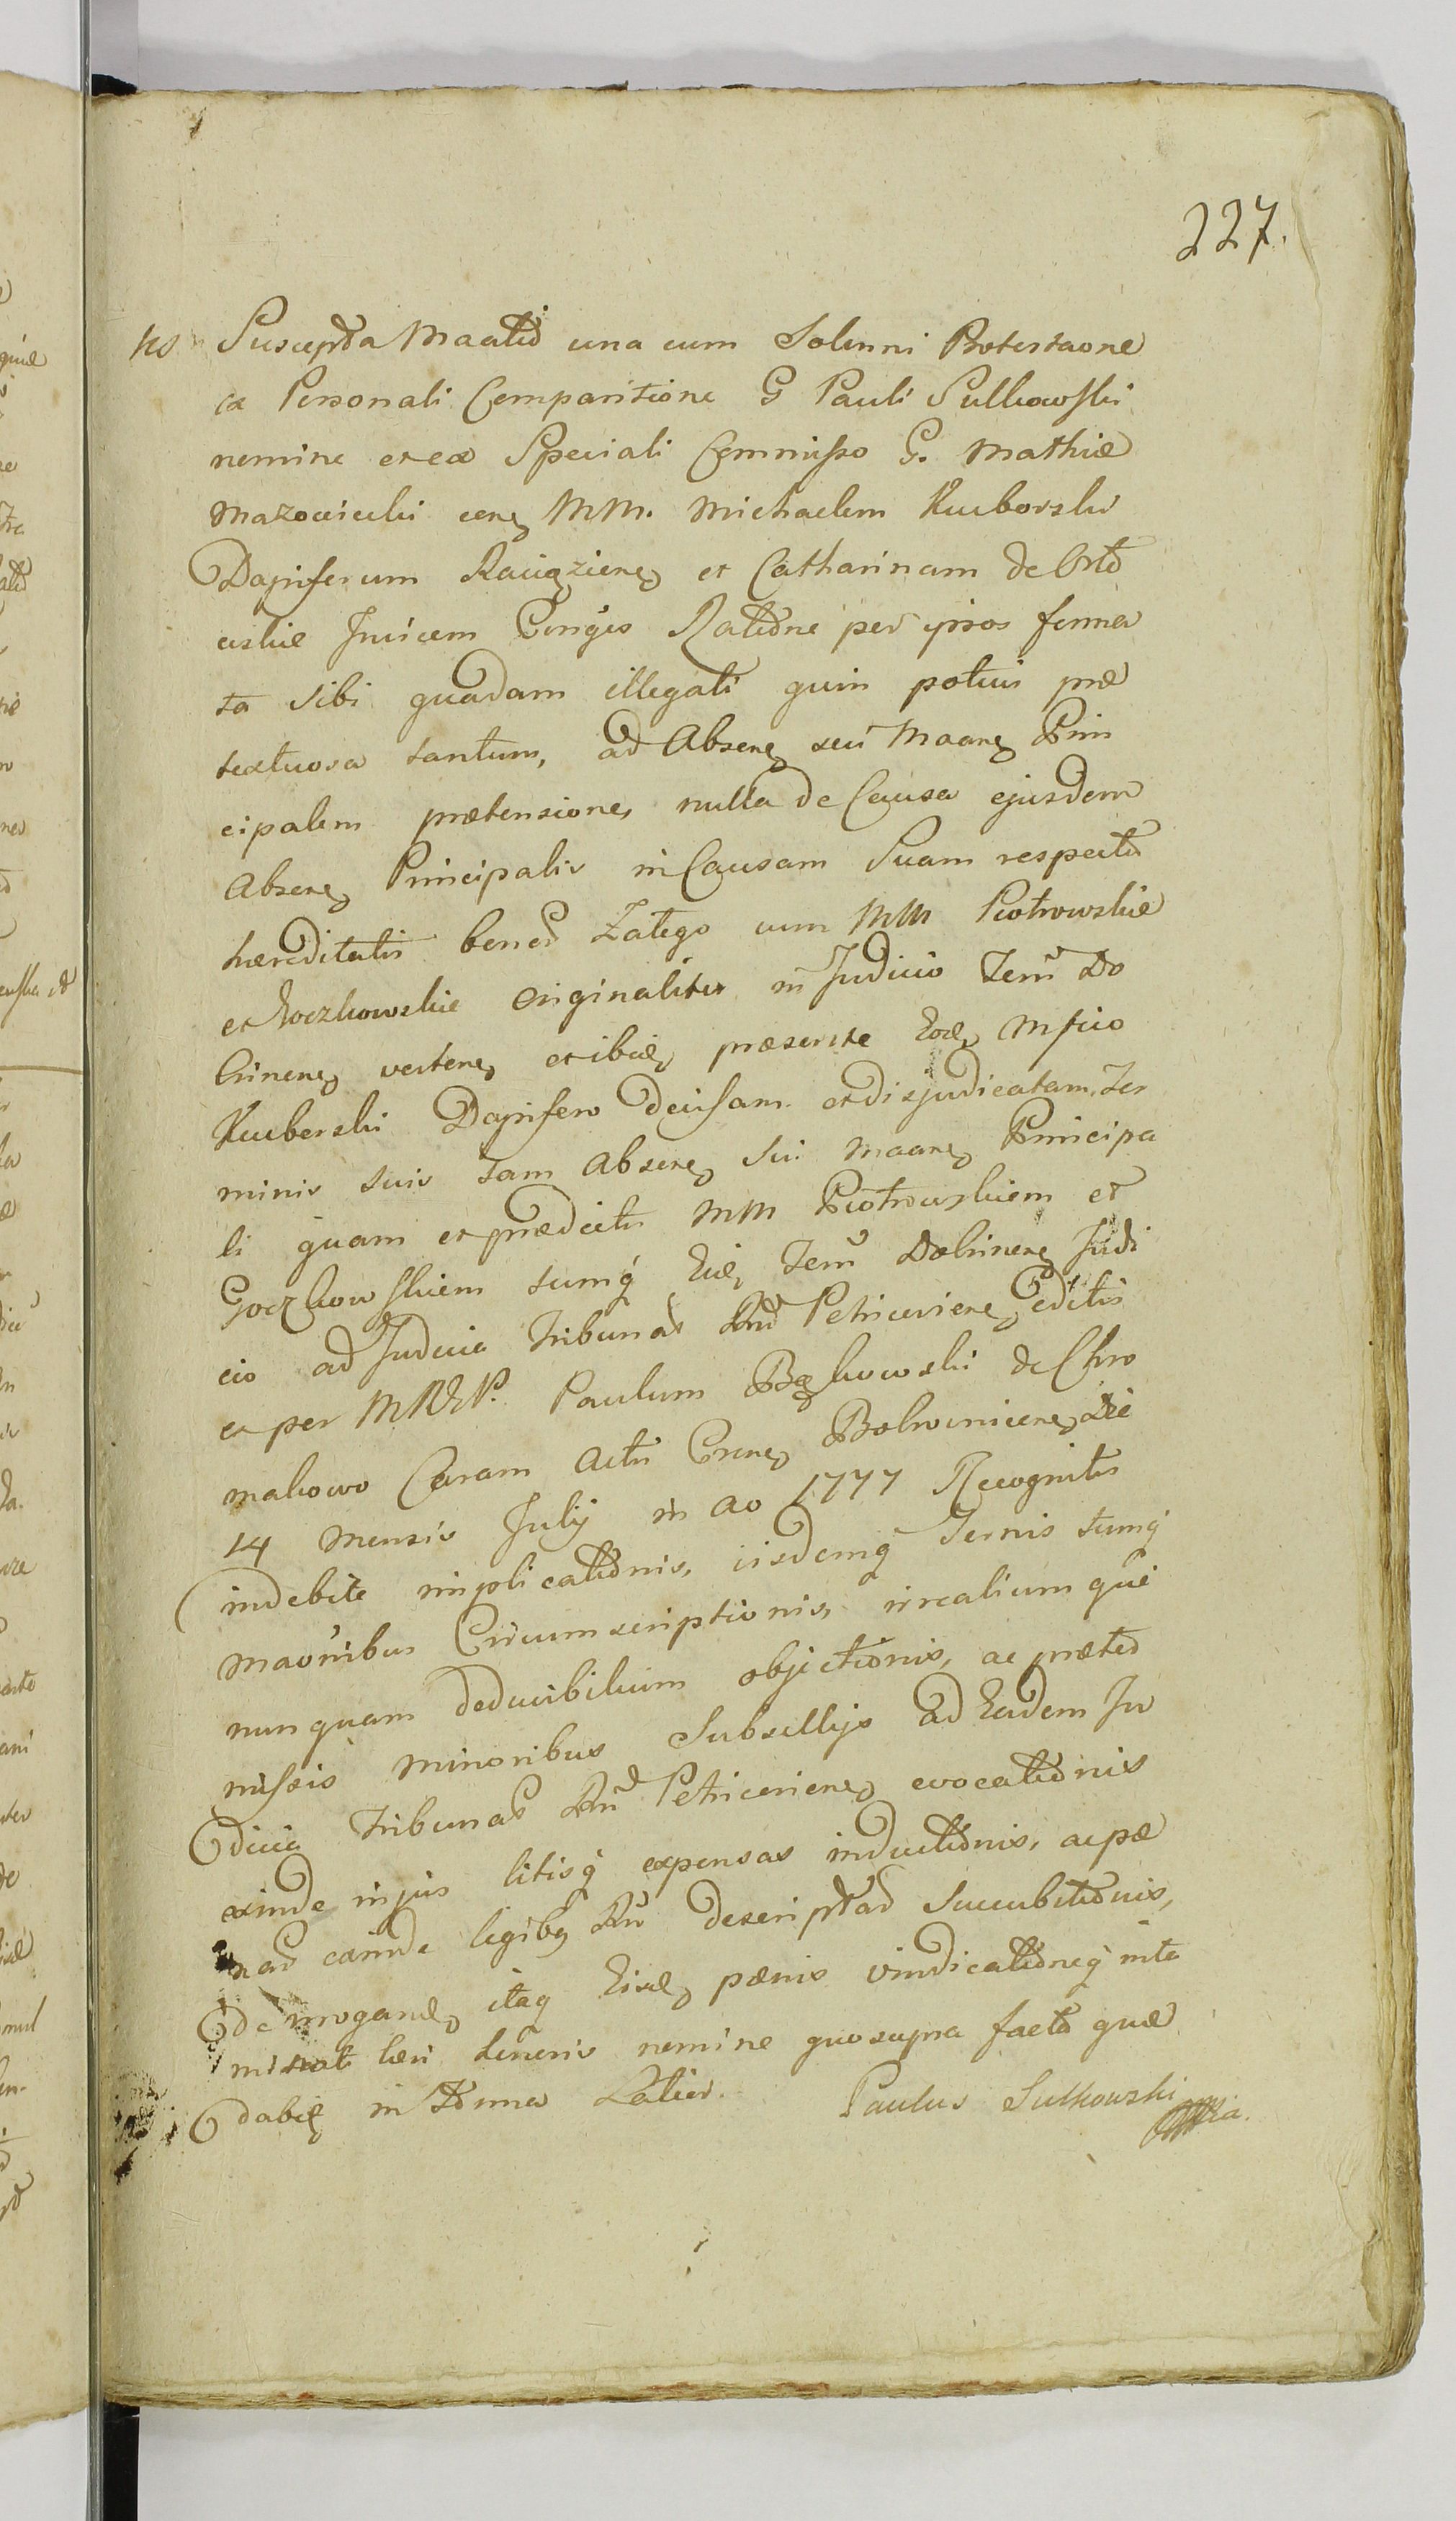 227.
Suscepta Maatio una cum Solenni Protestaone
ex Personali Comparitione G Pauli Sulkowski
nomine et ex Speciali Commisso G. Mathiæ
Mazowiecki cone MM. Michaelem Kuborski
Dapiferum Raciąziene et Catharinam de
Invicem Conges Ratione per ipsos forma
ta sibi quadam illegali quin potius præ
textuosa tantum, ad Absene seu Maane Prin
cipalem prætensione, nulla de Causa ejusdem
Absene Principalis in Causam Suam respectu
hæreditatis bonor Zatego cum MM Piotrowskie
et Goczkowskie Originaliter in Judicio Terri Do
brinene vertene et ibide præsente Eode Mfico
Kuborski Dapifero decisam et disjudicatam, Ter
minis suis tam Absene sui Maane Principa
li quam et prædictis MM Piotrowskiem et
Goczkowskiem tumq Eide Terri Dobrinene Judi
cio ad Judicia Tribunal Rni Petricoviene editis
et per MREP. Paulum Bąkowski de Chro
makowo Coram Actis Crene Bobrovnicene Die
14 mensis Julij in ao 1777 Recognitis
indebite implicationis, iisdemq Ternis tumq
Maonibus Circumscriptionis, irrealium que
nunquam deducibilium objectionis, ac præter
missis minoribus Subsellijs ad Eadem Ju
dicia Tribunal Rni Petricoviene evocationis
exinde in jus litisq expensas inductionis, ac pæ
nar exinde legibq Rni descriptar Succubitionis,
de irrogane, itaq Eisde pænis vindicationeq
lævi nomine quo supra facta quæ
dabit in Tmno Latior. Paulus Sulkowski